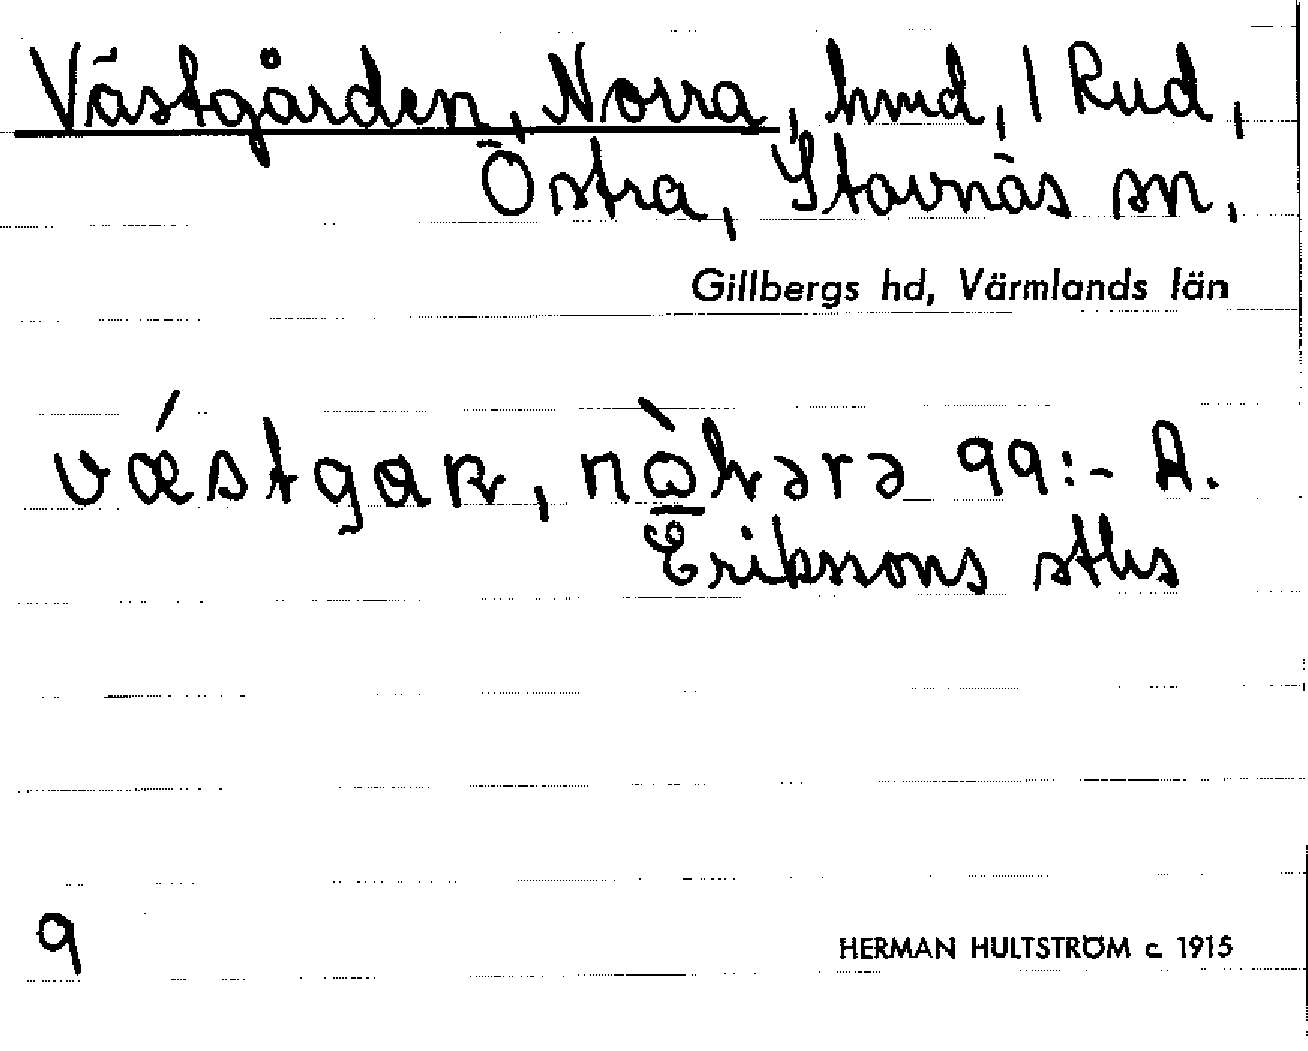 Västgården, Norra, hmd, 1 Rud,
Östra, Stavnäs sn,
Gillbergs hd, Värmlands län
vǽstgaɳ, nò̱hrərə 99:- A.
Erikssons sths
9
HERMAN HULTSTRÖM c. 1915